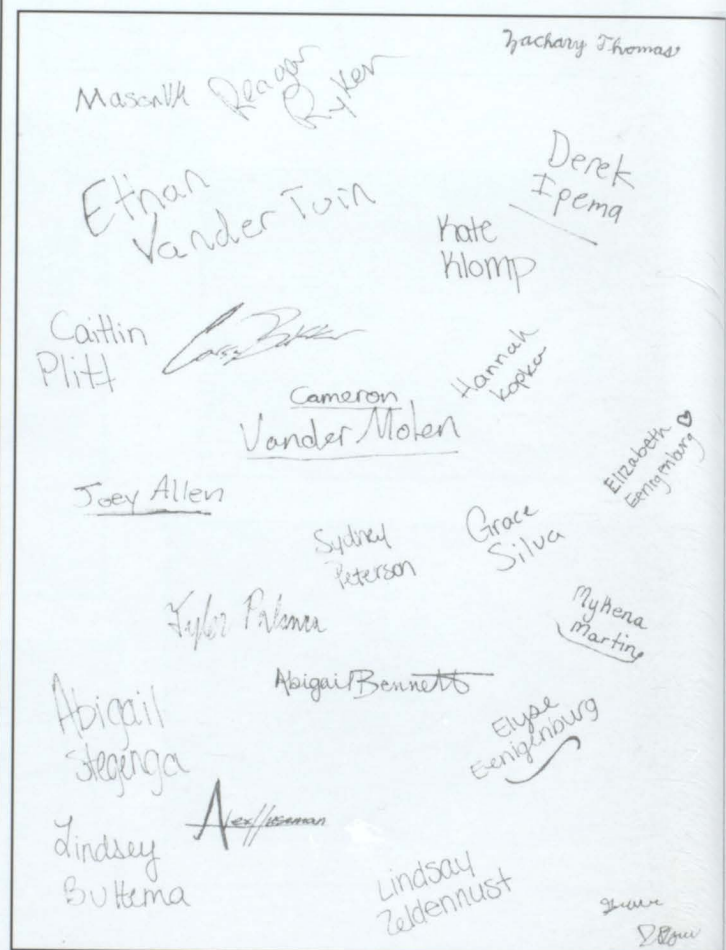 Zachary Thomas
MasonVH
Reagan
Ryker
Derek
Ipema
Ethan
VanderTuin
Kate
Klomp
Caitlin
Plitt
Hannah
Kopka
Cameron
Vander Molen
Elizabeth
Eenigenburg
Joey Allen
Grace
Silva
Sydney
Peterson
Myhena
Martin
Tyler
Abigail Bennett
Abigail
Stegenga
Elyse
Eenigenburg
Alex
Lindsey
Bultema
Lindsay
Zeldenrust